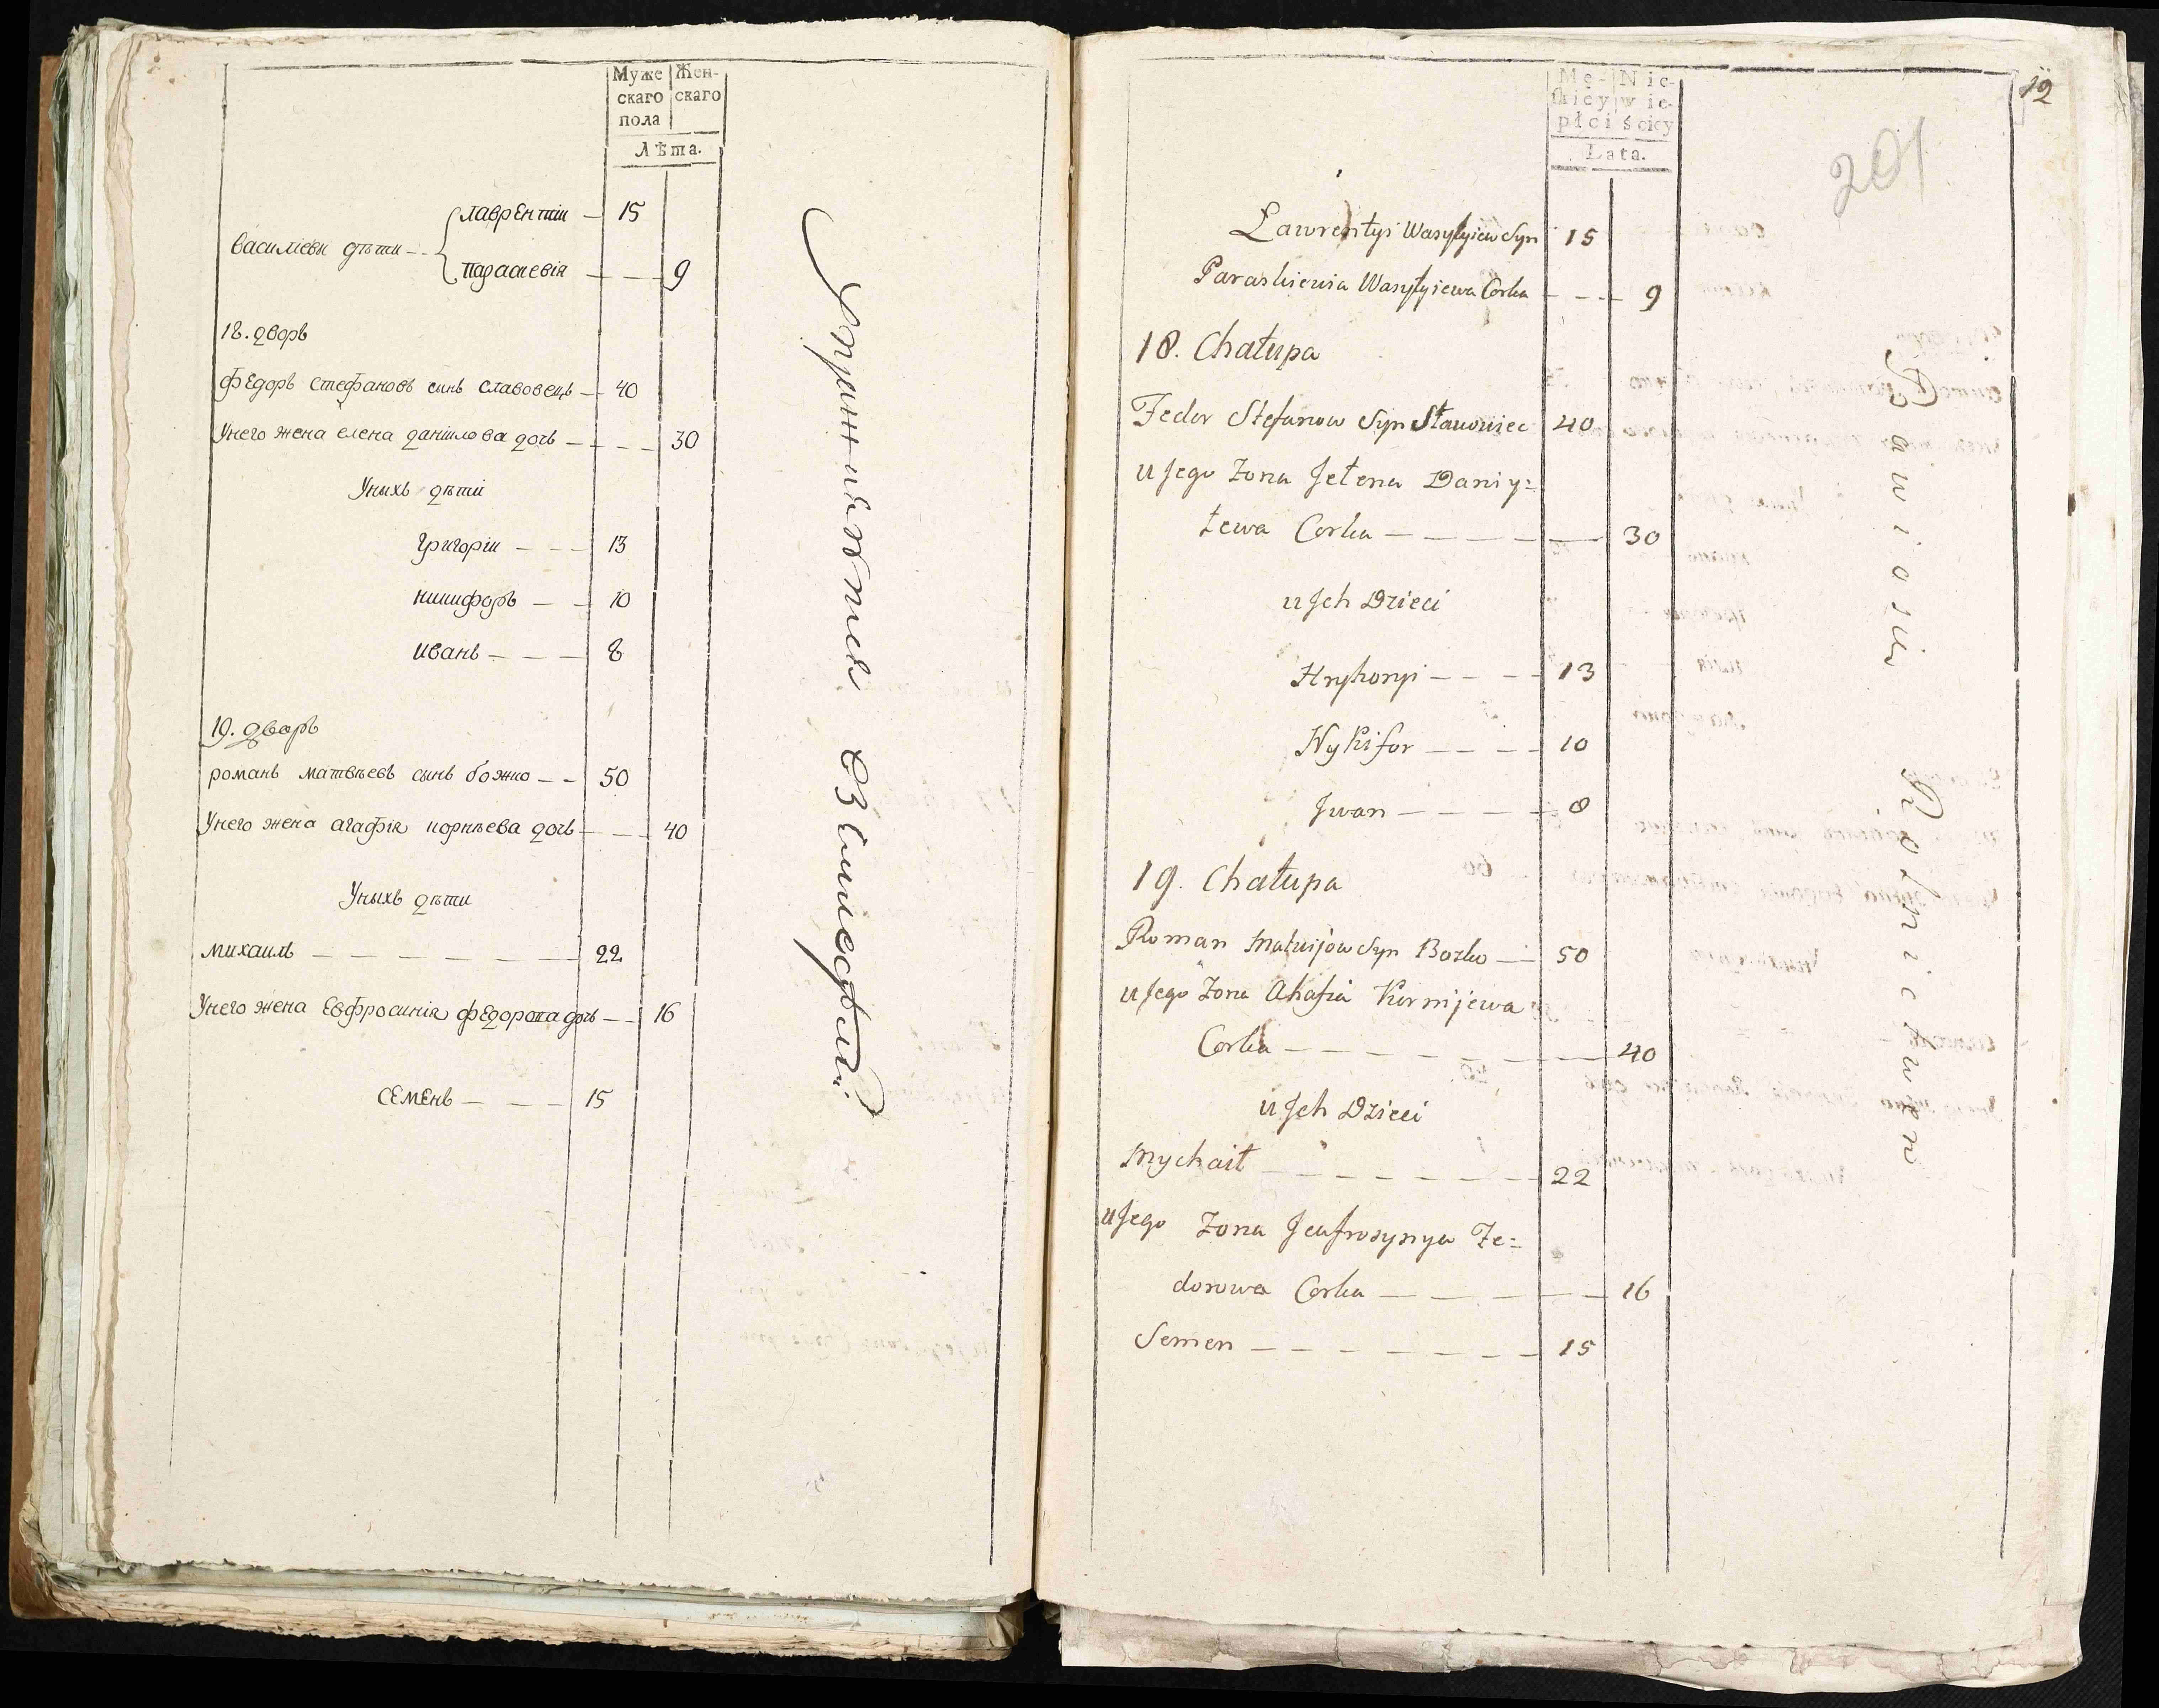 Муже
скаго
пола
Жен-
скаго
Лѣта.
Василіеви дѣти -- Лаврентіи — 15
Параскевія — — — 9
18. дворъ
Федоръ Стефановъ синъ Славовецъ — 40
Унего жена елена даніилова дочь — — — 30
Уныхъ дѣти
Григоріи — — — 13
никифоръ — — 10
иванъ — — — 8
19. дворъ
романъ матвѣевъ сынъ божко — — 50
Унего жена агафія корнѣева дочь — — — 40
Уныхъ дѣти
михаилъ — — — — — — 22
Унего жена Евфросинія федорова дочь — — 16
СЕМЕНЪ — — — 15
12
201
Mę-
skiey
płci
Nie-
wie-
ściey
Lata.
Ławrentyi Wasylyiew Syn 15
Paraskiewia Wasylyiewa Corka - - - 9
18. Chałupa
Fedor Stefanow Syn Sławowiec 40
u Jego Żona Jełena Daniy=
łewa Corka — — — — — — 30
u Jch Dzieci
Hryhoryi — — — — 13
Nykifor — — — — 10
Jwan — — — — — 8
19. Chałupa
Roman Matwijow Syn Bożko — — 50
u Jego Żona Ahafia Kornijewa
Corka — — — — — — — — 40
u Jch Dzieci
Mychaił — — — — — — — 22
u Jego Żona Jeufrosynya Fe=
dorowa Corka — — — — — — 16
Semen — — — — — — — 15